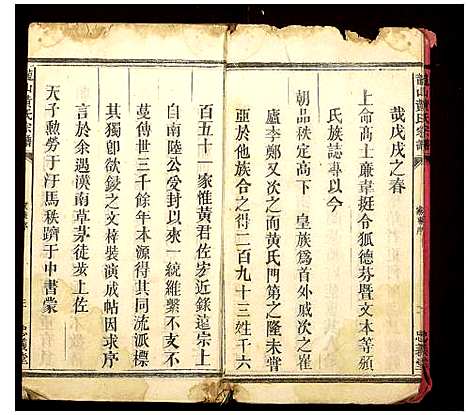 龍山黃氏宗譜
忠義堂
哉戊戌之春
上命高士廉韋挺令狐德芬暨文本等頒
氏族誌專以今
朝品秩定高下 皇族為首外戚次之崔
盧李鄭又次之而黃氏門第之隆未嘗
亞於他族合之得二百九十三姓千六
百五十一家惟黃君佐宏近錄遠宗上
自南陸公受封以來一統維繫不支不
蔓傳世三千餘年本源得其同流派標
其獨卽欲鋟之文梓裝演成帖因求序
言於余遇漢南草茅徒步上佐
天子勲勞于汗馬秩躋于中書蒙
龍山黃氏宗譜
忠義堂